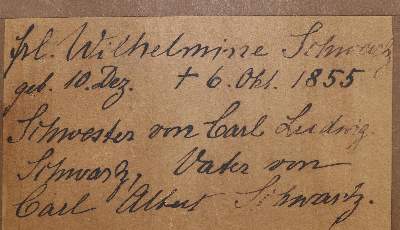 frl. Wilhelmine Schwartz
geb. 10. Dez. † 6. Okt. 1855
Schwester von Carl Ludwig
Schwartz, Vater von
Carl Albert Schwartz.